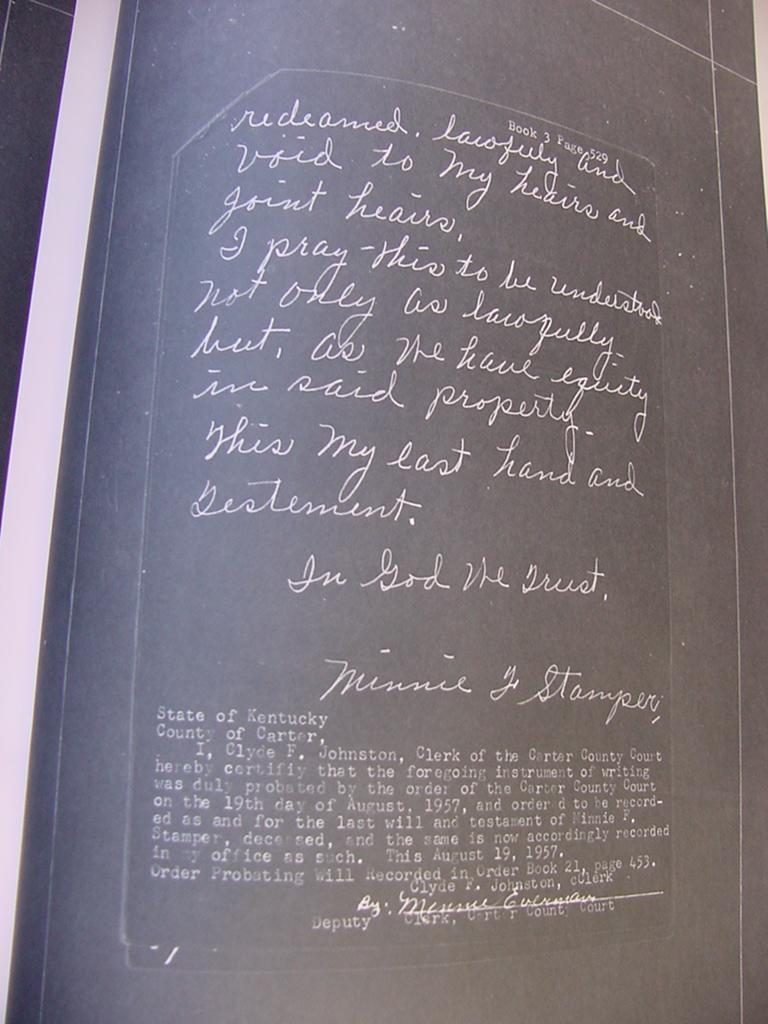 Book 3 Page 529
redeamed. lawfully and
void to my heairs and
joint heairs,
I pray this to be understood
not only as lawfully
but, as we have equity
in said property-
This my last hand and
Testement.
In God We Trust,
Minnie F Stamper,
State of Kentucky
County of Carter,
I, Clyde F. Johnston, Clerk of the Carter County Court
hereby certifiy that the foregoing instrument of writing
was duly probated by the order of the Carter County Court
on the 19th day of August, 1957, and ordered to be record-
ed as and for the last will and testament of Minnie F.
Stamper, deceased, and the same is now accordingly recorded
in my office as such. This August 19, 1957.
Order Probating Will Recorded in Order Book 21, page 453.
Clyde F. Johnston, cClerk
By: Minnie Everman
Deputy Clerk, Carter County Court